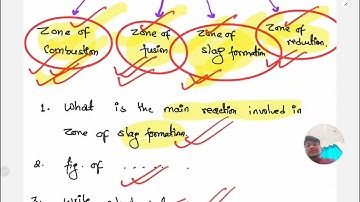 Zone of Combustion
Zone of fusion
Zone of slag formation
Zone of reduction.
1. What is the main reaction involved in
Zone of slag formation.
2. fig. of ..........
3. Write